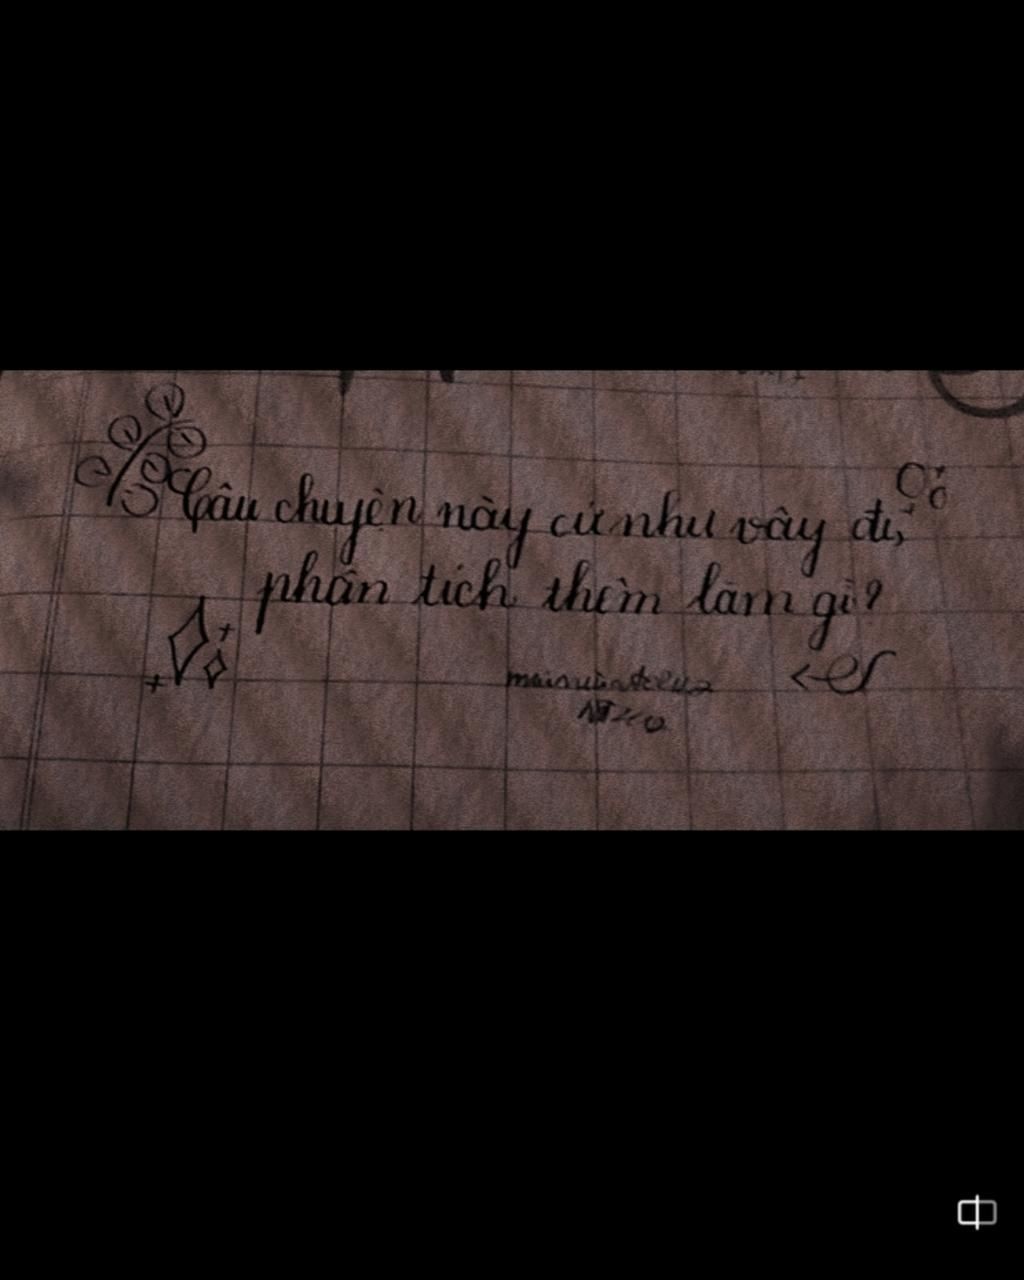 Câu chuyện này cứ như vậy đi,
phân tích thêm làm gì?